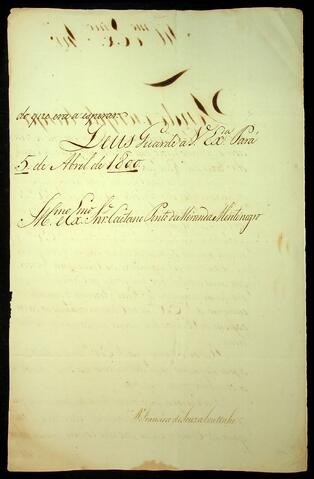 de que era a esperar.
Deus Guarde a V. Ex.ª Pará
5 de Abril de 1800.
Ill.mo e Ex.mo Snr. Caetano Pinto de Miranda Montenegro
D. Francisco de Souza Coutinho